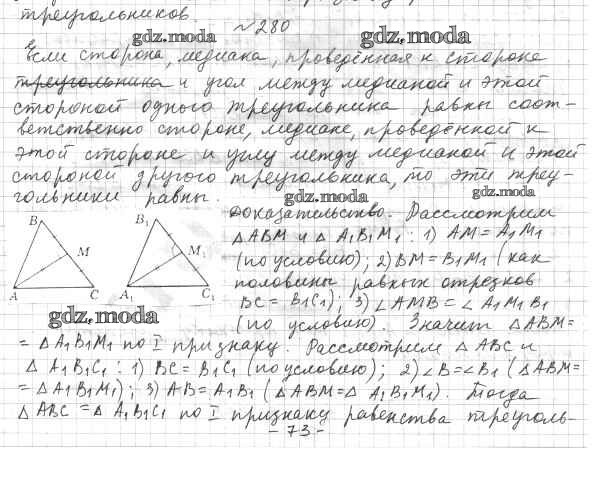 треугольников
№280
gdz.moda gdz.moda
Если сторона, медиана, проведённая к стороне
треугольника и угол между медианой и этой
стороной одного треугольника равны соот-
ветственно стороне, медиане, проведённой к
этой стороне и углу между медианой и этой
стороной другого треугольника, то эти треу-
гольники равны.
gdz.moda gdz.moda
B M A C
B₁ M₁ A₁ C₁
Доказательство. Рассмотрим
△ABM и △A₁B₁M₁: 1) AM = A₁M₁
(по условию); 2) BM = B₁M₁ (как
половины равных отрезков
BC = B₁C₁); 3) ∠AMB = ∠A₁M₁B₁
gdz.moda
(по условию). Значит △ABM =
= △A₁B₁M₁ по I признаку. Рассмотрим △ABC и
△A₁B₁C₁: 1) BC = B₁C₁ (по условию); 2) ∠B = ∠B₁ (△ABM =
= △A₁B₁M₁); 3) AB = A₁B₁ (△ABM = △A₁B₁M₁). Тогда
△ABC = △A₁B₁C₁ по I признаку равенства треуголь-
- 73 -